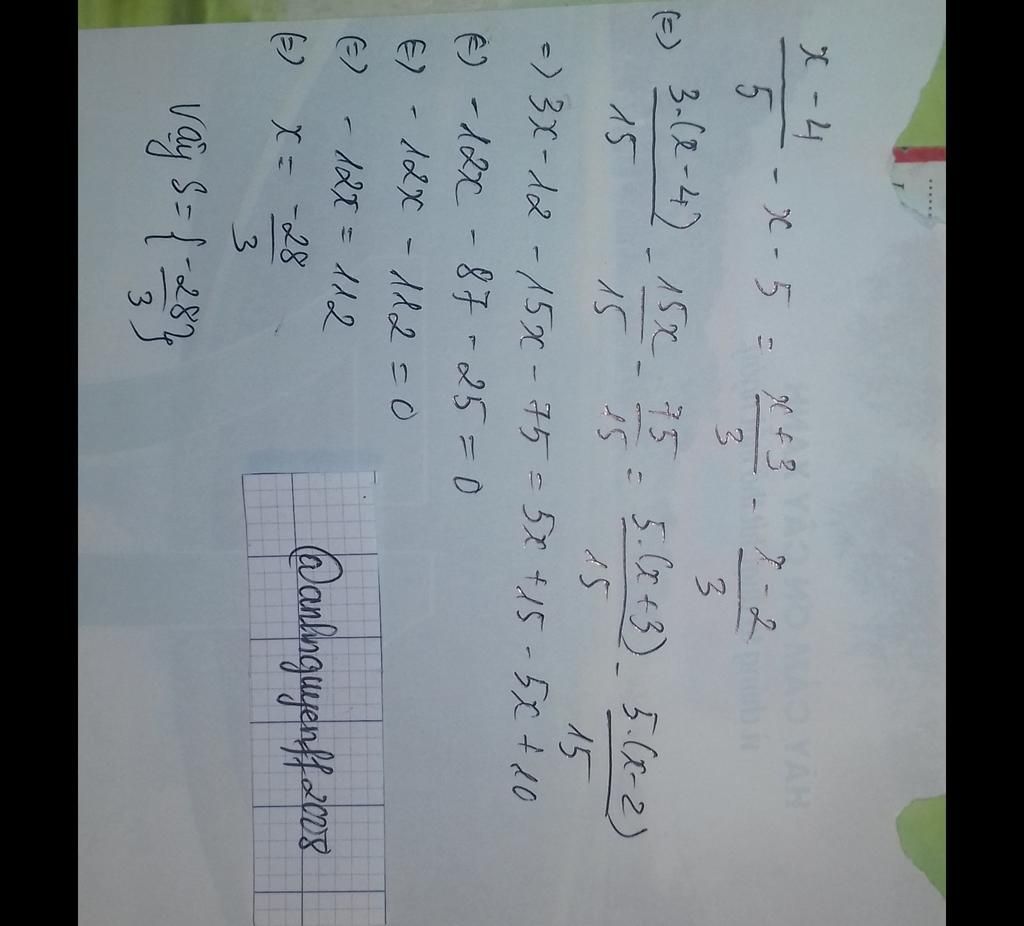 x - 4 / 5 - x - 5 = x + 3 / 3 - x - 2 / 3
(=) 3.(x - 4) / 15 - 15x / 15 - 75 / 15 = 5.(x + 3) / 15 - 5.(x - 2) / 15
=) 3x - 12 - 15x - 75 = 5x + 15 - 5x + 10
(=) - 12x - 87 - 25 = 0
(=) - 12x - 112 = 0
(=) - 12x = 112
(=) x = -28 / 3
Vậy S = { -28 / 3 }
@anhnguyenff2008